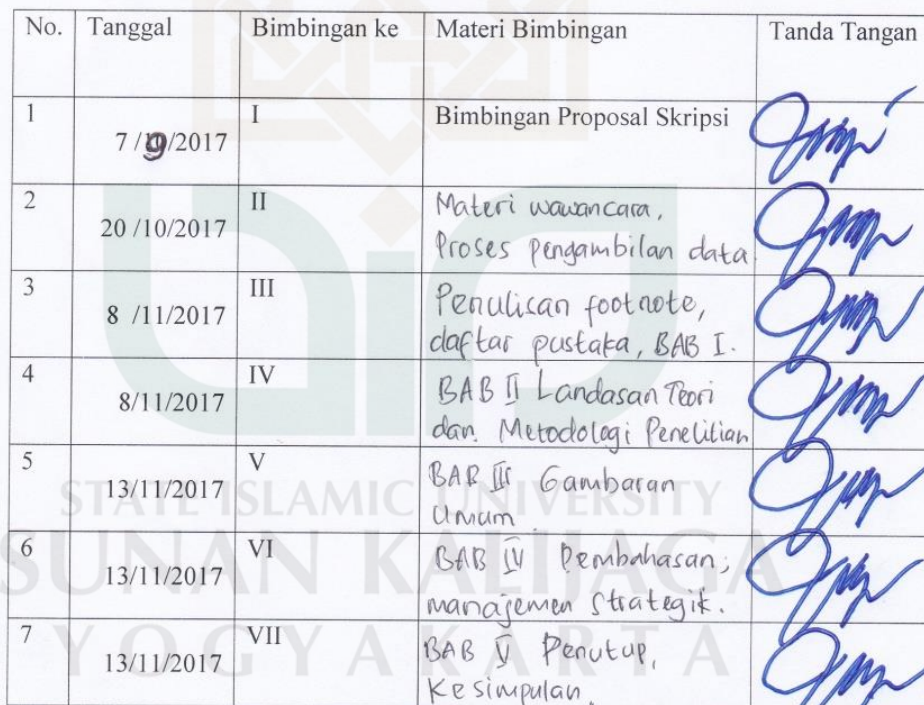 No. Tanggal Bimbingan ke Materi Bimbingan Tanda Tangan
1 7 /9/2017 I Bimbingan Proposal Skripsi
2 20 /10/2017 II Materi wawancara,
Proses pengambilan data.
3 8 /11/2017 III Penulisan footnote,
daftar pustaka, BAB I.
4 8/11/2017 IV BAB II Landasan Teori
dan Metodologi Penelitian
5 13/11/2017 V BAB III Gambaran
Umum
6 13/11/2017 VI BAB IV Pembahasan,
manajemen Strategik.
7 13/11/2017 VII BAB V Penutup,
Kesimpulan.
STATE ISLAMIC UNIVERSITY
SUNAN KALIJAGA
YOGYAKARTA